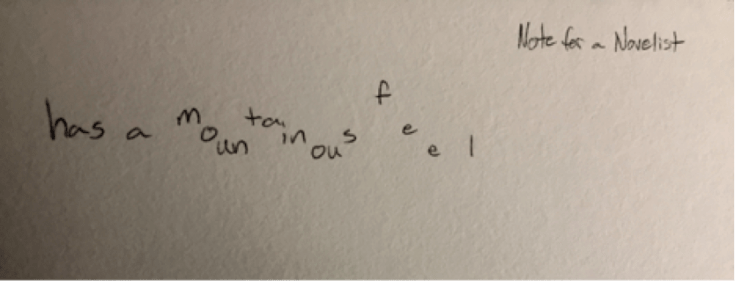 Note for a Novelist
has a mountainous feel